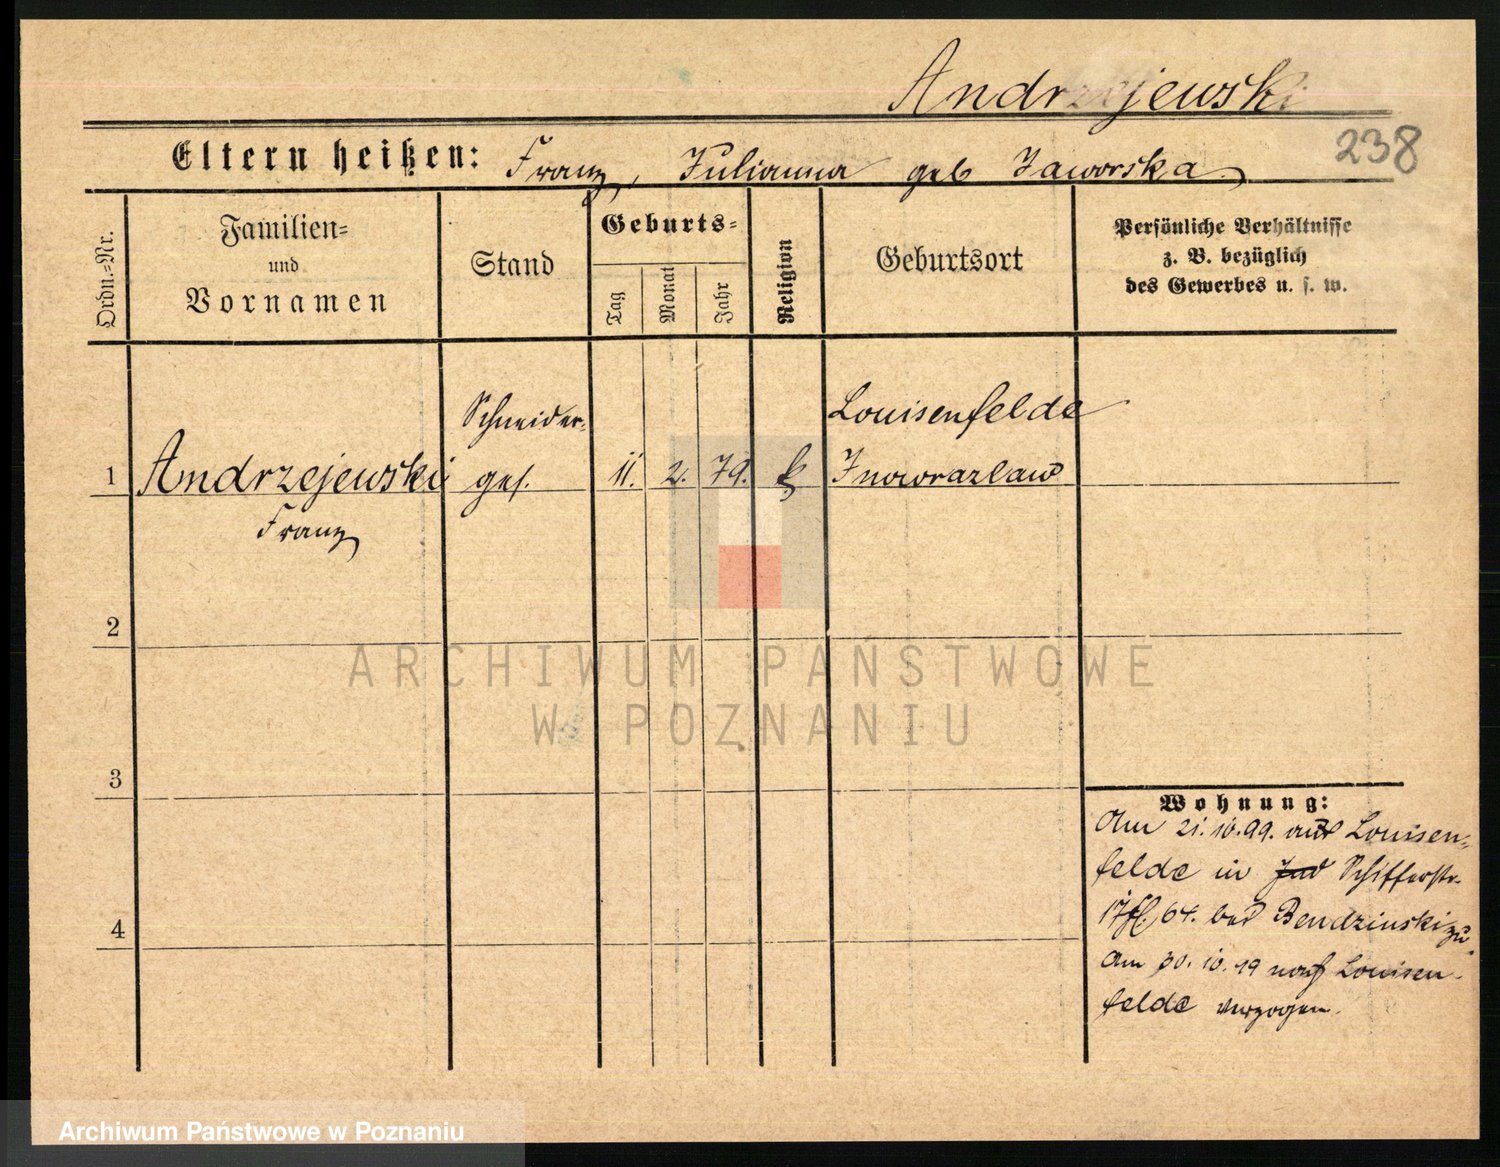 Andrzejewski
238
Eltern heißen: Franz, Julianna geb Jaworska.
Ordn.-Nr.
Familien-
und
Vornamen
Stand
Geburts-
Tag
Monat
Jahr
Religion
Geburtsort
Persönliche Verhältnisse
z. B. bezüglich
des Gewerbes u. s. w.
Schneider- Louisenfelde
1 Andrzejewski ges. 11. 2. 79. k Inowrazlaw
Franz
2
ARCHIWUM PAŃSTWOWE
W POZNANIU
3
4
Wohnung:
Am 21.10.99. aus Louisen-
felde in Schifferstr.
17 64. bei Bendzinski zu
Am 30.10.99 nach Louisen-
felde verzogen.
Archiwum Państwowe w Poznaniu